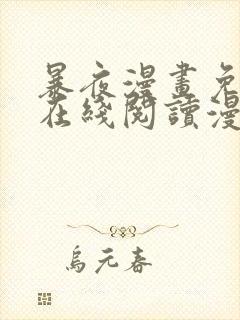 暴夜漫畫免
在綫閱讀漫
烏元春